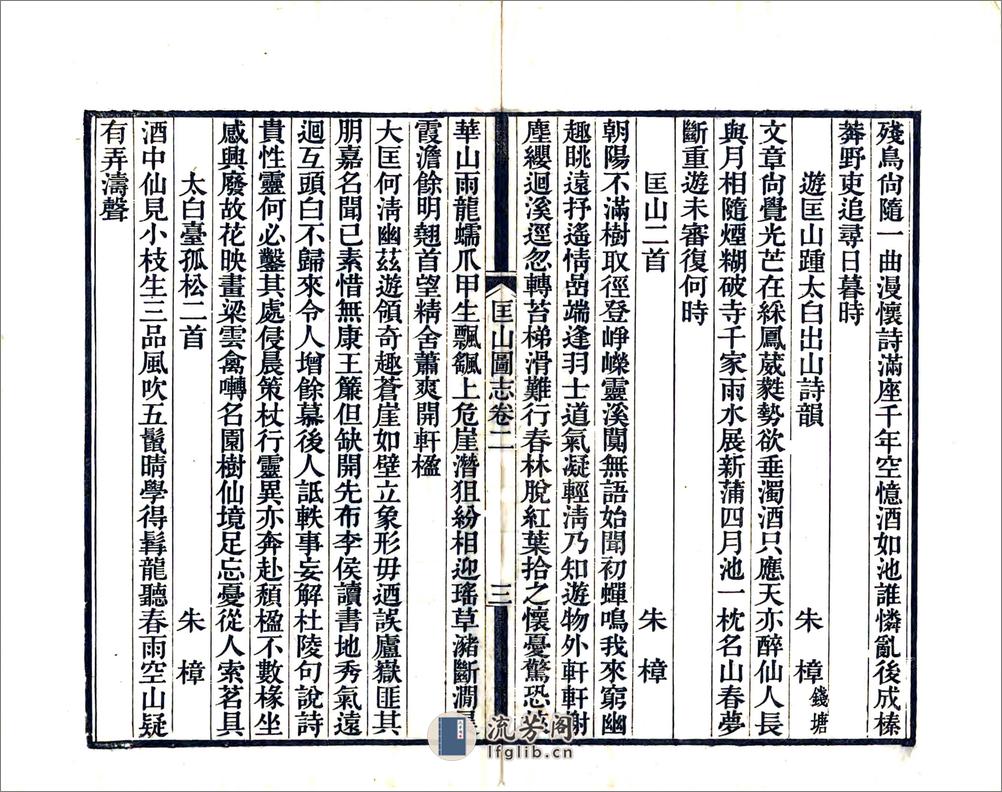 殘鳥尙隨一曲漫懷詩滿座千年空憶酒如池誰憐亂後成榛
莾野吏追尋日暮時
遊匡山踵太白出山詩韻 朱樟錢塘
文章尙覺光芒在綵鳳葳蕤勢欲垂濁酒只應天亦醉仙人長
與月相隨煙糊破寺千家雨水展新蒲四月池一枕名山春夢
斷重遊未審復何時
匡山二首 朱樟
朝陽不滿樹取徑登崢嶸靈溪闃無語始聞初蟬鳴我來窮幽
趣眺遠抒遙情嵒端逢羽士道氣凝輕淸乃知遊物外軒軒謝
塵纓迴溪逕忽轉苔梯滑難行春林脫紅葉拾之懷憂驚恐
匡山圖志卷二 三
華山雨龍蠕爪甲生飄飄上危崖潛狙紛相迎瑤草瀦斷澗
霞澹餘明翹首望精舍蕭爽開軒楹
大匡何淸幽茲遊領奇趣蒼崖如壁立象形毋迺誤廬嶽匪其
朋嘉名聞已素惜無康王簾但缺開先布李侯讀書地秀氣遠
迴互頭白不歸來令人增餘慕後人詆軼事妄解杜陵句說詩
貴性靈何必鑿其處侵晨策杖行靈異亦奔赴頹楹不數椽坐
感興廢故花映畫梁雲禽囀名園樹仙境足忘憂從人索茗具
太白臺孤松二首 朱樟
酒中仙見小枝生三品風吹五鬛晴學得髯龍聽春雨空山疑
有弄濤聲
流芳阁
lfglib.cn